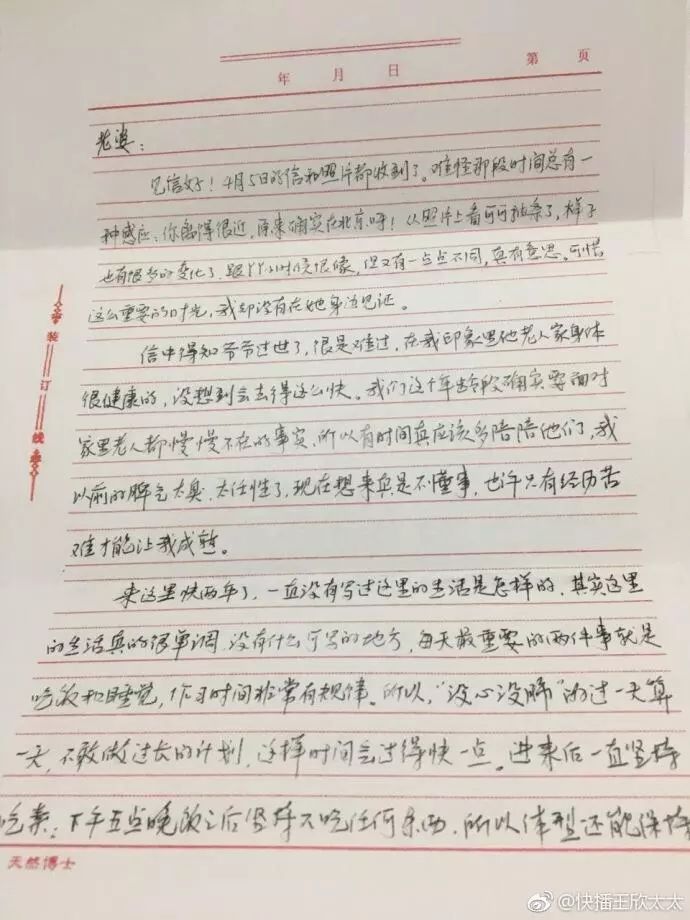 年 月 日 第 页
老婆：
见信好！4月5日的信和照片都收到了。难怪那段时间总有一
种感应：你离得很近，原来确实在北京呀！从照片上看可可抽条了，样子
也有很多的变化了，跟丫丫小时侯很像，但又有一点点不同，真有意思。可惜
这么重要的时光，我却没有在她身边见证。
信中得知爷爷过世了，很是难过，在我印象里他老人家身体
很健康的，没想到会去得这么快。我们这个年龄段确实要面对
家里老人都慢慢不在的事实，所以有时间真应该多陪陪他们，我
以前的脾气太臭，太任性了，现在想来真是不懂事，也许只有经历苦
难才能让我成熟。
来这里快两年了，一直没有写过这里的生活是怎样的，其实这里
的生活真的很单调，没有什么可写的地方，每天最重要的两件事就是
吃饭和睡觉，作习时间非常有规律。所以，“没心没肺”的过一天算
一天，不敢做过长的计划，这样时间会过得快一点。进来后一直坚持
吃素；下午五点晚饭之后坚持不吃任何东西，所以体型还能保持
装订线
天然博士
@快播王欣太太